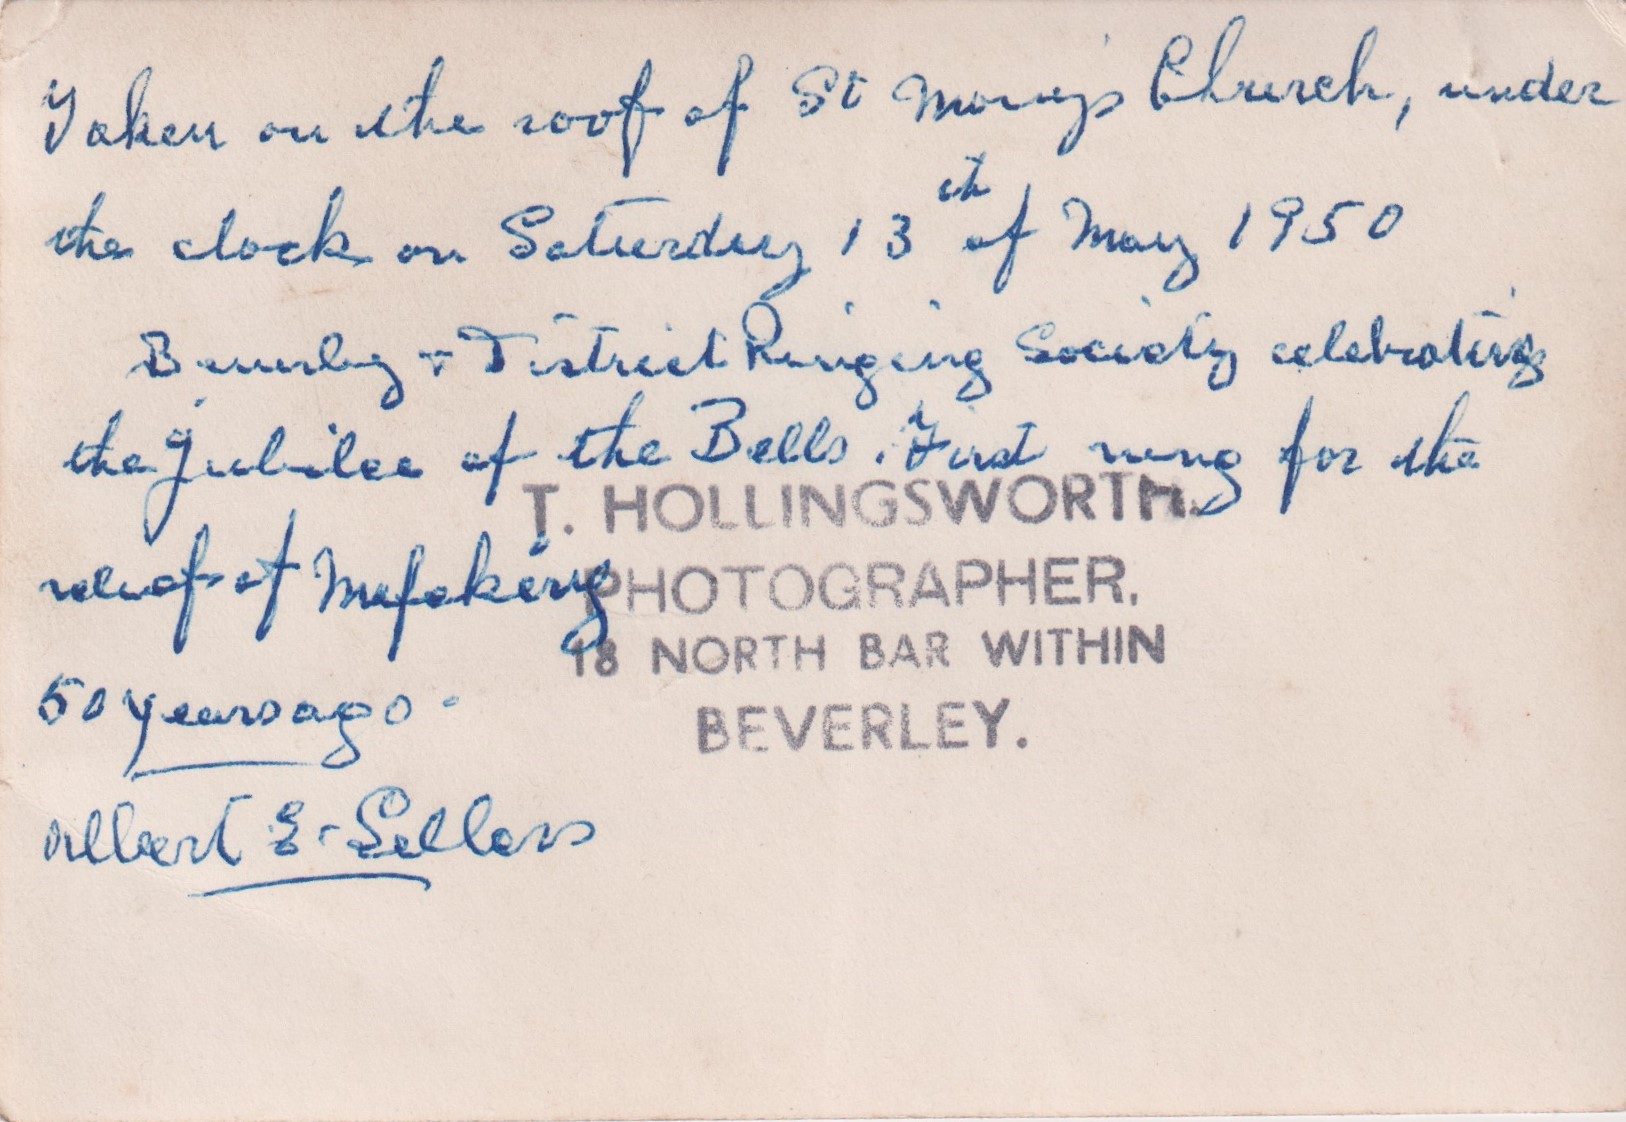 Taken on the roof of St Mary's Church, under
the clock on Saturday 13th of May 1950
Beverley + District Ringing Society celebrating
the Jubilee of the Bells. First rung for the
relief of Mafeking
50 years ago.
Albert E. Sellers
T. HOLLINGSWORTH.
PHOTOGRAPHER,
18 NORTH BAR WITHIN
BEVERLEY.